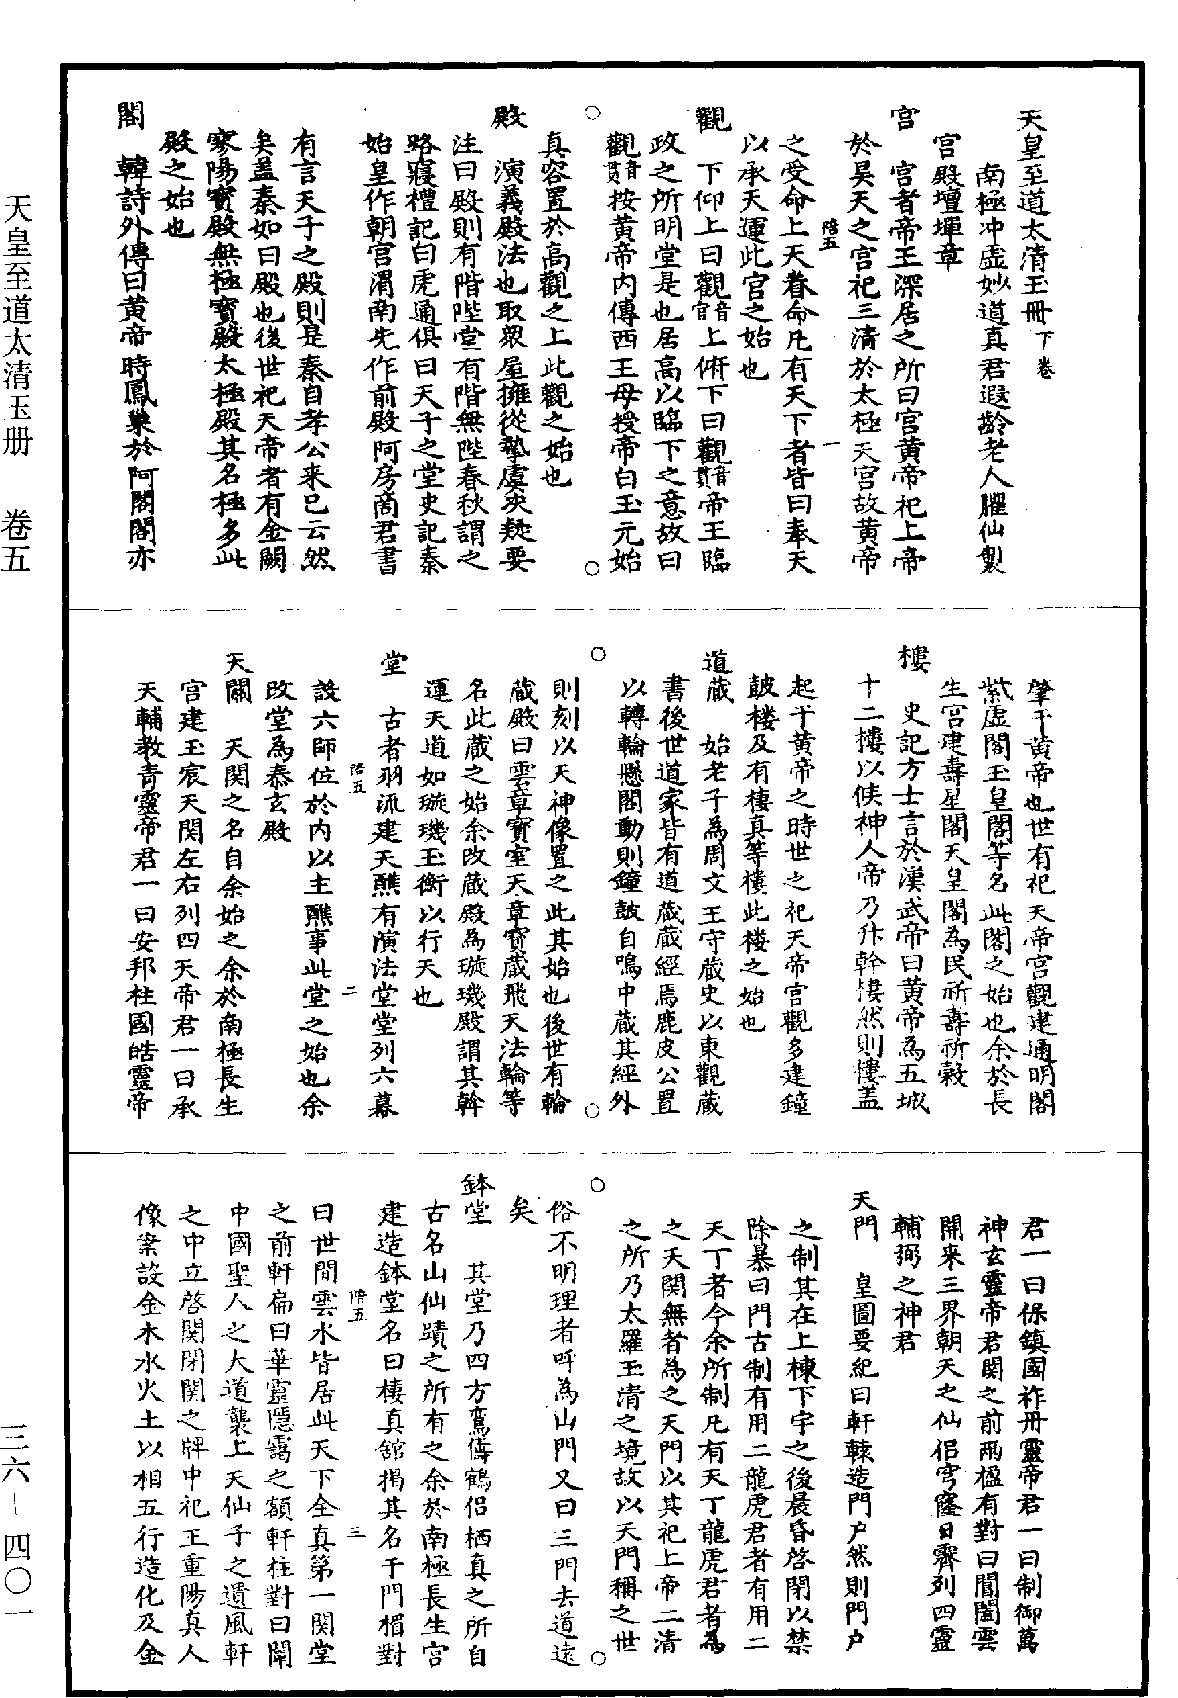 天皇至道太清玉冊 卷五
三六-四〇一
天皇至道太清玉冊下卷
南極冲虛妙道真君遐齡老人臞仙製
宮殿壇墠章
宮 宮者帝王深居之所曰宮黃帝祀上帝
於昊天之宮祀三清於太極天宮故黃帝
陪五 一
之受命上天眷命凡有天下者皆曰奉天
以承天運此宮之始也
觀 下仰上曰觀音官上俯下曰觀音貫帝王臨
政之所明堂是也居高以臨下之意故曰
觀音貫按黃帝内傳西王母授帝白玉元始
○ ○
真容置於高觀之上此觀之始也
殿 演義殿法也取眾屋擁從摯虞決疑要
注曰殿則有階陛堂有階無陛春秋謂之
路寢禮記白虎通俱曰天子之堂史記秦
始皇作朝宮渭南先作前殿阿房商君書
有言天子之殿則是秦自孝公来已云然
矣蓋秦如曰殿也後世祀天帝者有金闕
寥陽寶殿無極寶殿太極殿其名極多此
殿之始也
閣 韓詩外傳曰黃帝時鳳巢於阿閣閣亦
肇于黃帝也世有祀天帝宮觀建通明閣
紫虛閣玉皇閣等名此閣之始也余於長
生宮建壽星閣天皇閣為民祈壽祈穀
樓 史記方士言於漢武帝曰黃帝為五城
十二樓以候神人帝乃作幹樓然則樓蓋
起于黃帝之時世之祀天帝宮觀多建鐘
皷樓及有棲真等樓此樓之始也
道藏 始老子為周文王守藏史以東觀藏
書後世道家皆有道藏藏經焉鹿皮公置
以轉輪懸閣動則鐘皷自鳴中藏其經外
○ ○
則刻以天神像置之此其始也後世有輪
藏殿曰雲章寶室天章寶藏飛天法輪等
名此藏之始余改藏殿為璇璣殿謂其幹
運天道如璇璣玉衡以行天也
堂 古者羽流建天醮有演法堂堂列六幕
陪五 二
設六師位於内以主醮事此堂之始也余
改堂為泰玄殿
天關 天関之名自余始之余於南極長生
宮建玉宸天関左右列四天帝君一曰承
天輔教青靈帝君一曰安邦柱國皓靈帝
君一曰保鎮國祚丹靈帝君一曰制御萬
神玄靈帝君関之前兩楹有對曰閶闔雲
開来三界朝天之仙侣穹窿日霽列四靈
輔弼之神君
天門 皇圖要紀曰軒轅造門户然則門户
之制其在上棟下宇之後晨昏啓閉以禁
除暴曰門古制有用二龍虎君者有用二
天丁者今余所制凡有天丁龍虎君者為
之天関無者為之天門以其祀上帝三清
之所乃太羅玉清之境故以天門稱之世
○ ○
俗不明理者呼為山門又曰三門去道遠
矣
鉢堂 其堂乃四方鸞儔鶴侣栖真之所自
古名山仙蹟之所有之余於南極長生宮
建造鉢堂名曰棲真舘揭其名于門楣對
陪五 三
曰世間雲水皆居此天下全真第一関堂
之前軒扁曰華靈隱靄之額軒柱對曰闡
中國聖人之大道襲上天仙子之遺風軒
之中立啓関閉関之牌中祀王重陽真人
像案設金木水火土以相五行造化及金